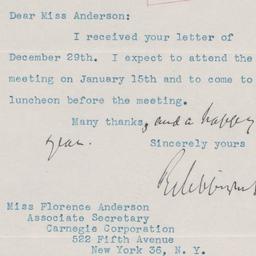 Dear Miss Anderson:
I received your letter of
December 29th. I expect to attend the
meeting on January 15th and to come to
luncheon before the meeting.
Many thanks, and a happy
year.
Sincerely yours
Miss Florence Anderson
Associate Secretary
Carnegie Corporation
522 Fifth Avenue
New York 36, N. Y.